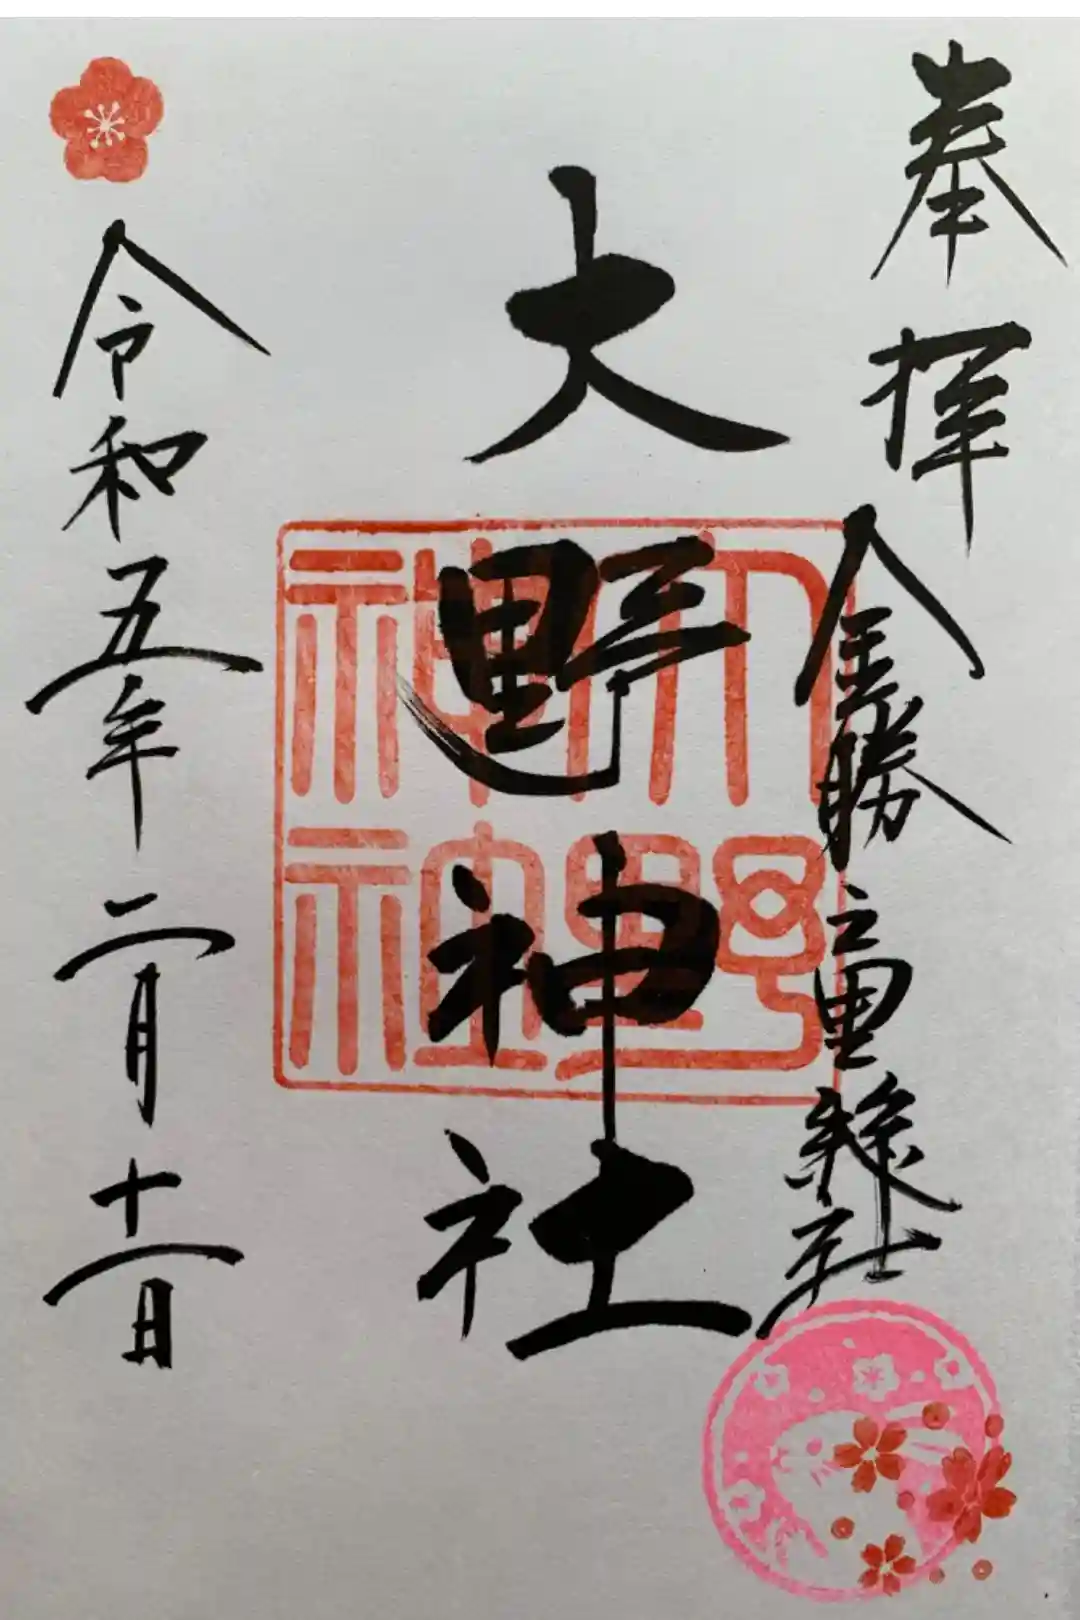 奉拝
金勝
大野神社
令和五年二月十一日
大野
神社